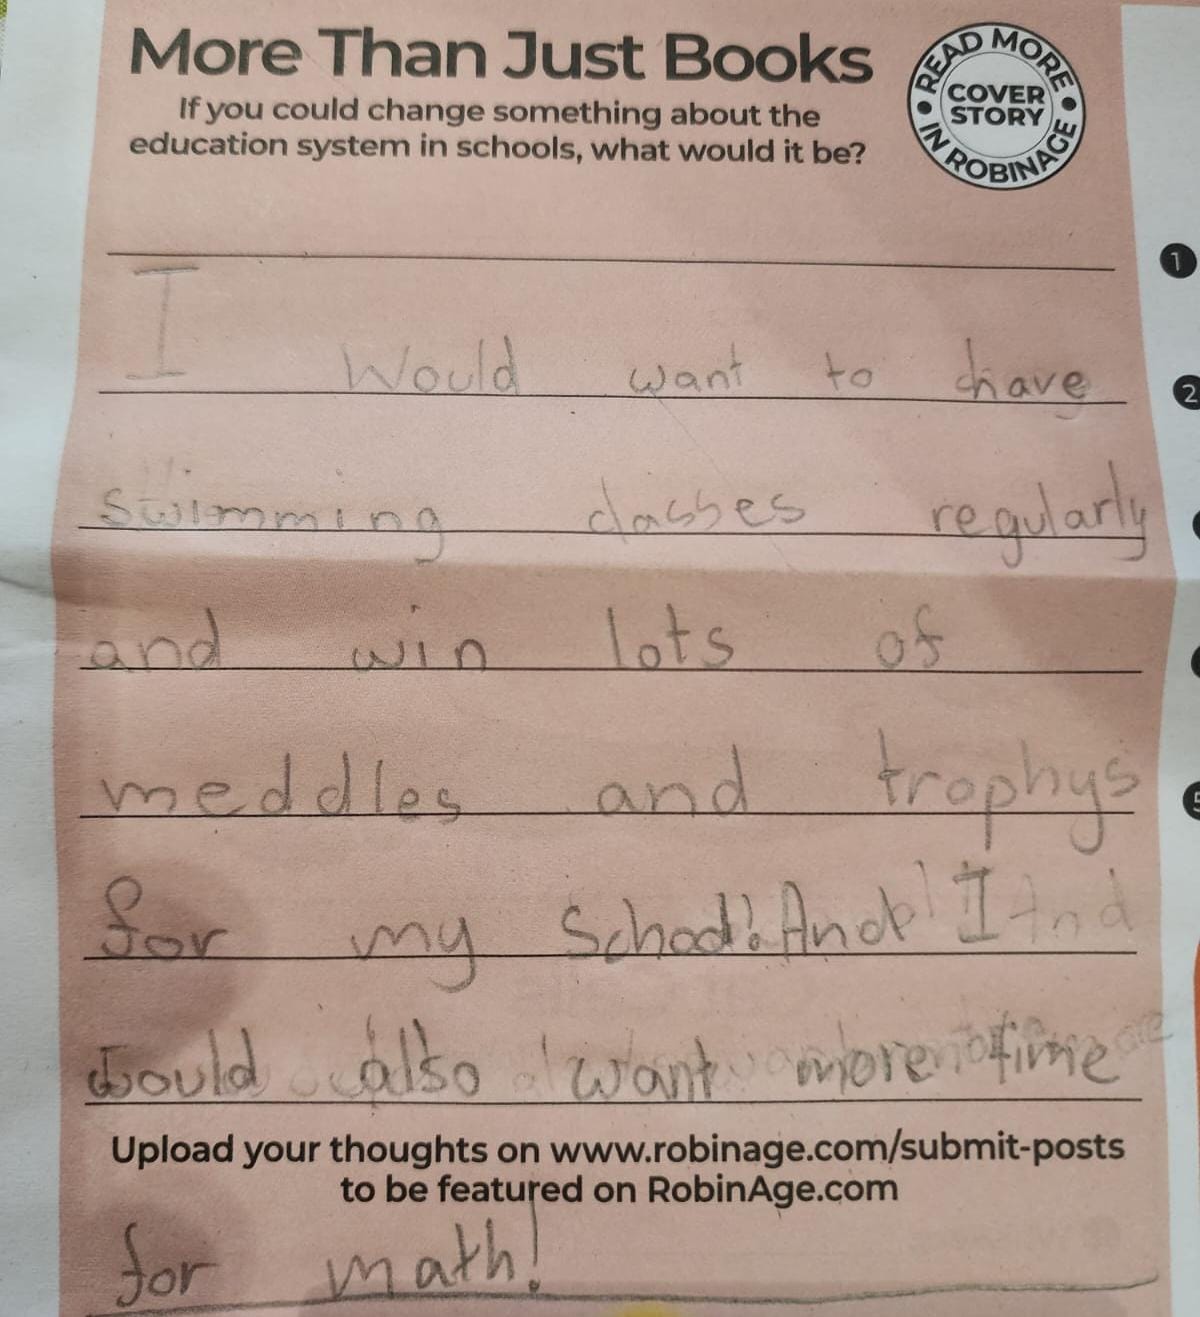 More Than Just Books
If you could change something about the
education system in schools, what would it be?
READ MORE
COVER
STORY
IN ROBINAGE
1
I Would want to have
2
swimming classes regularly
and win lots of
meddles and trophys
5
for my School! And I
would also want more time
Upload your thoughts on www.robinage.com/submit-posts
to be featured on RobinAge.com
for math!